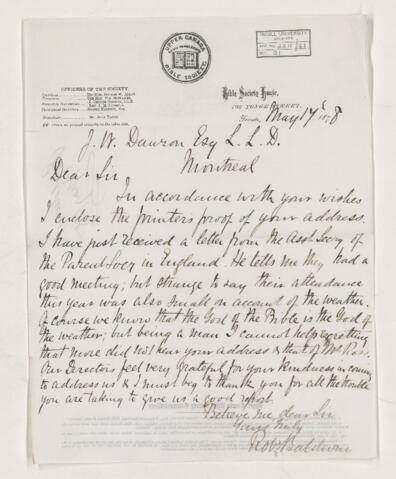 UPPER CANADA
BIBLE SOCIETY
McGILL UNIVERSITY
ARCHIVES
ACC. NO.
OFFICERS OF THE SOCIETY.
Bible Society House,
102 YONGE STREET,
Toronto, May 17th 1878
J. W. Dawson Esq L. L. D.
Montreal
Dear Sir
In accordance with your wishes
I enclose the printers proof of your address.
I have just received a letter from the Asst. Secy of
the Parent Socy in England. He tells me they had a
good meeting; but strange to say their attendance
this year was also small on account of the weather.
Of course we know that the God of the Bible is the God of
the weather; but being a man I cannot help regretting
that more did not hear your address & that of Mr Ross.
Our Directors feel very grateful for your kindness in coming
to address us & I must beg to thank you for all the trouble
you are taking to give us a good report.
Believe me, dear Sir
Yours truly
Robt Baldwin